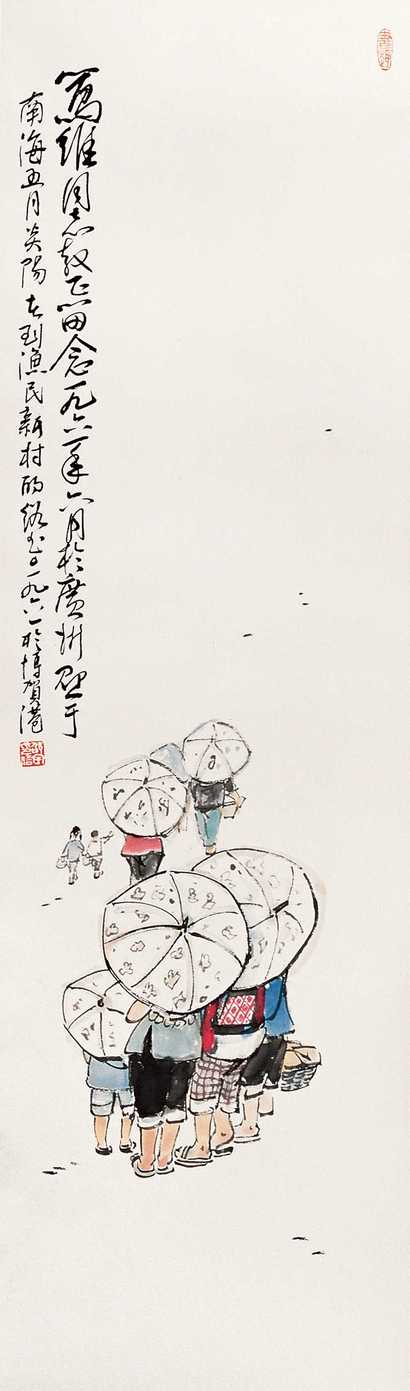 維同志教正留念一九六一年六月於廣州
南海五月炎陽去到漁民新村的路上一九六一於博賀港